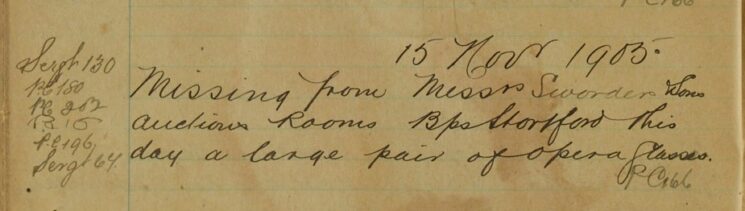 PC166
15 Novr 1905.
Sergt 130
PC 180
PC 202
PC 15
PC 196
Sergt 64
Missing from Messrs Sworder & Sons
Auctions Rooms Bps Stortford this
day a large pair of opera glasses.
PC166